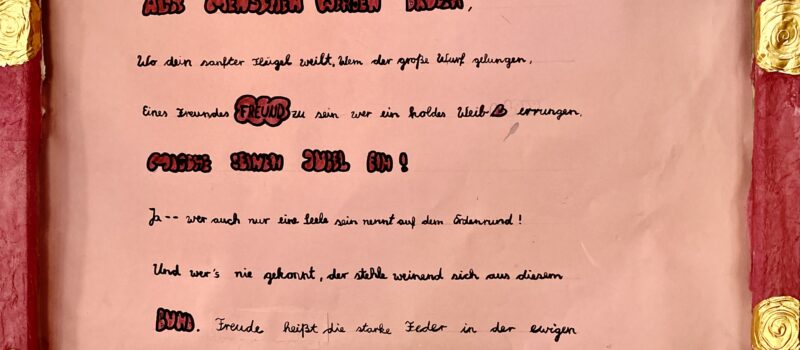 ALLE MENSCHEN WERDEN BRÜDER,
Wo dein sanfter Flügel weilt, Wem der große Wurf gelungen,
Eines Freundes FREUND zu sein wer ein holdes Weib errungen,
MISCHE SEINEN JUBEL EIN!
Ja -- wer auch nur eine Seele sein nennt auf dem Erdenrund!
Und wer's nie gekonnt, der stehle weinend sich aus diesem
BUND. Freude heißt die starke Feder in der ewigen